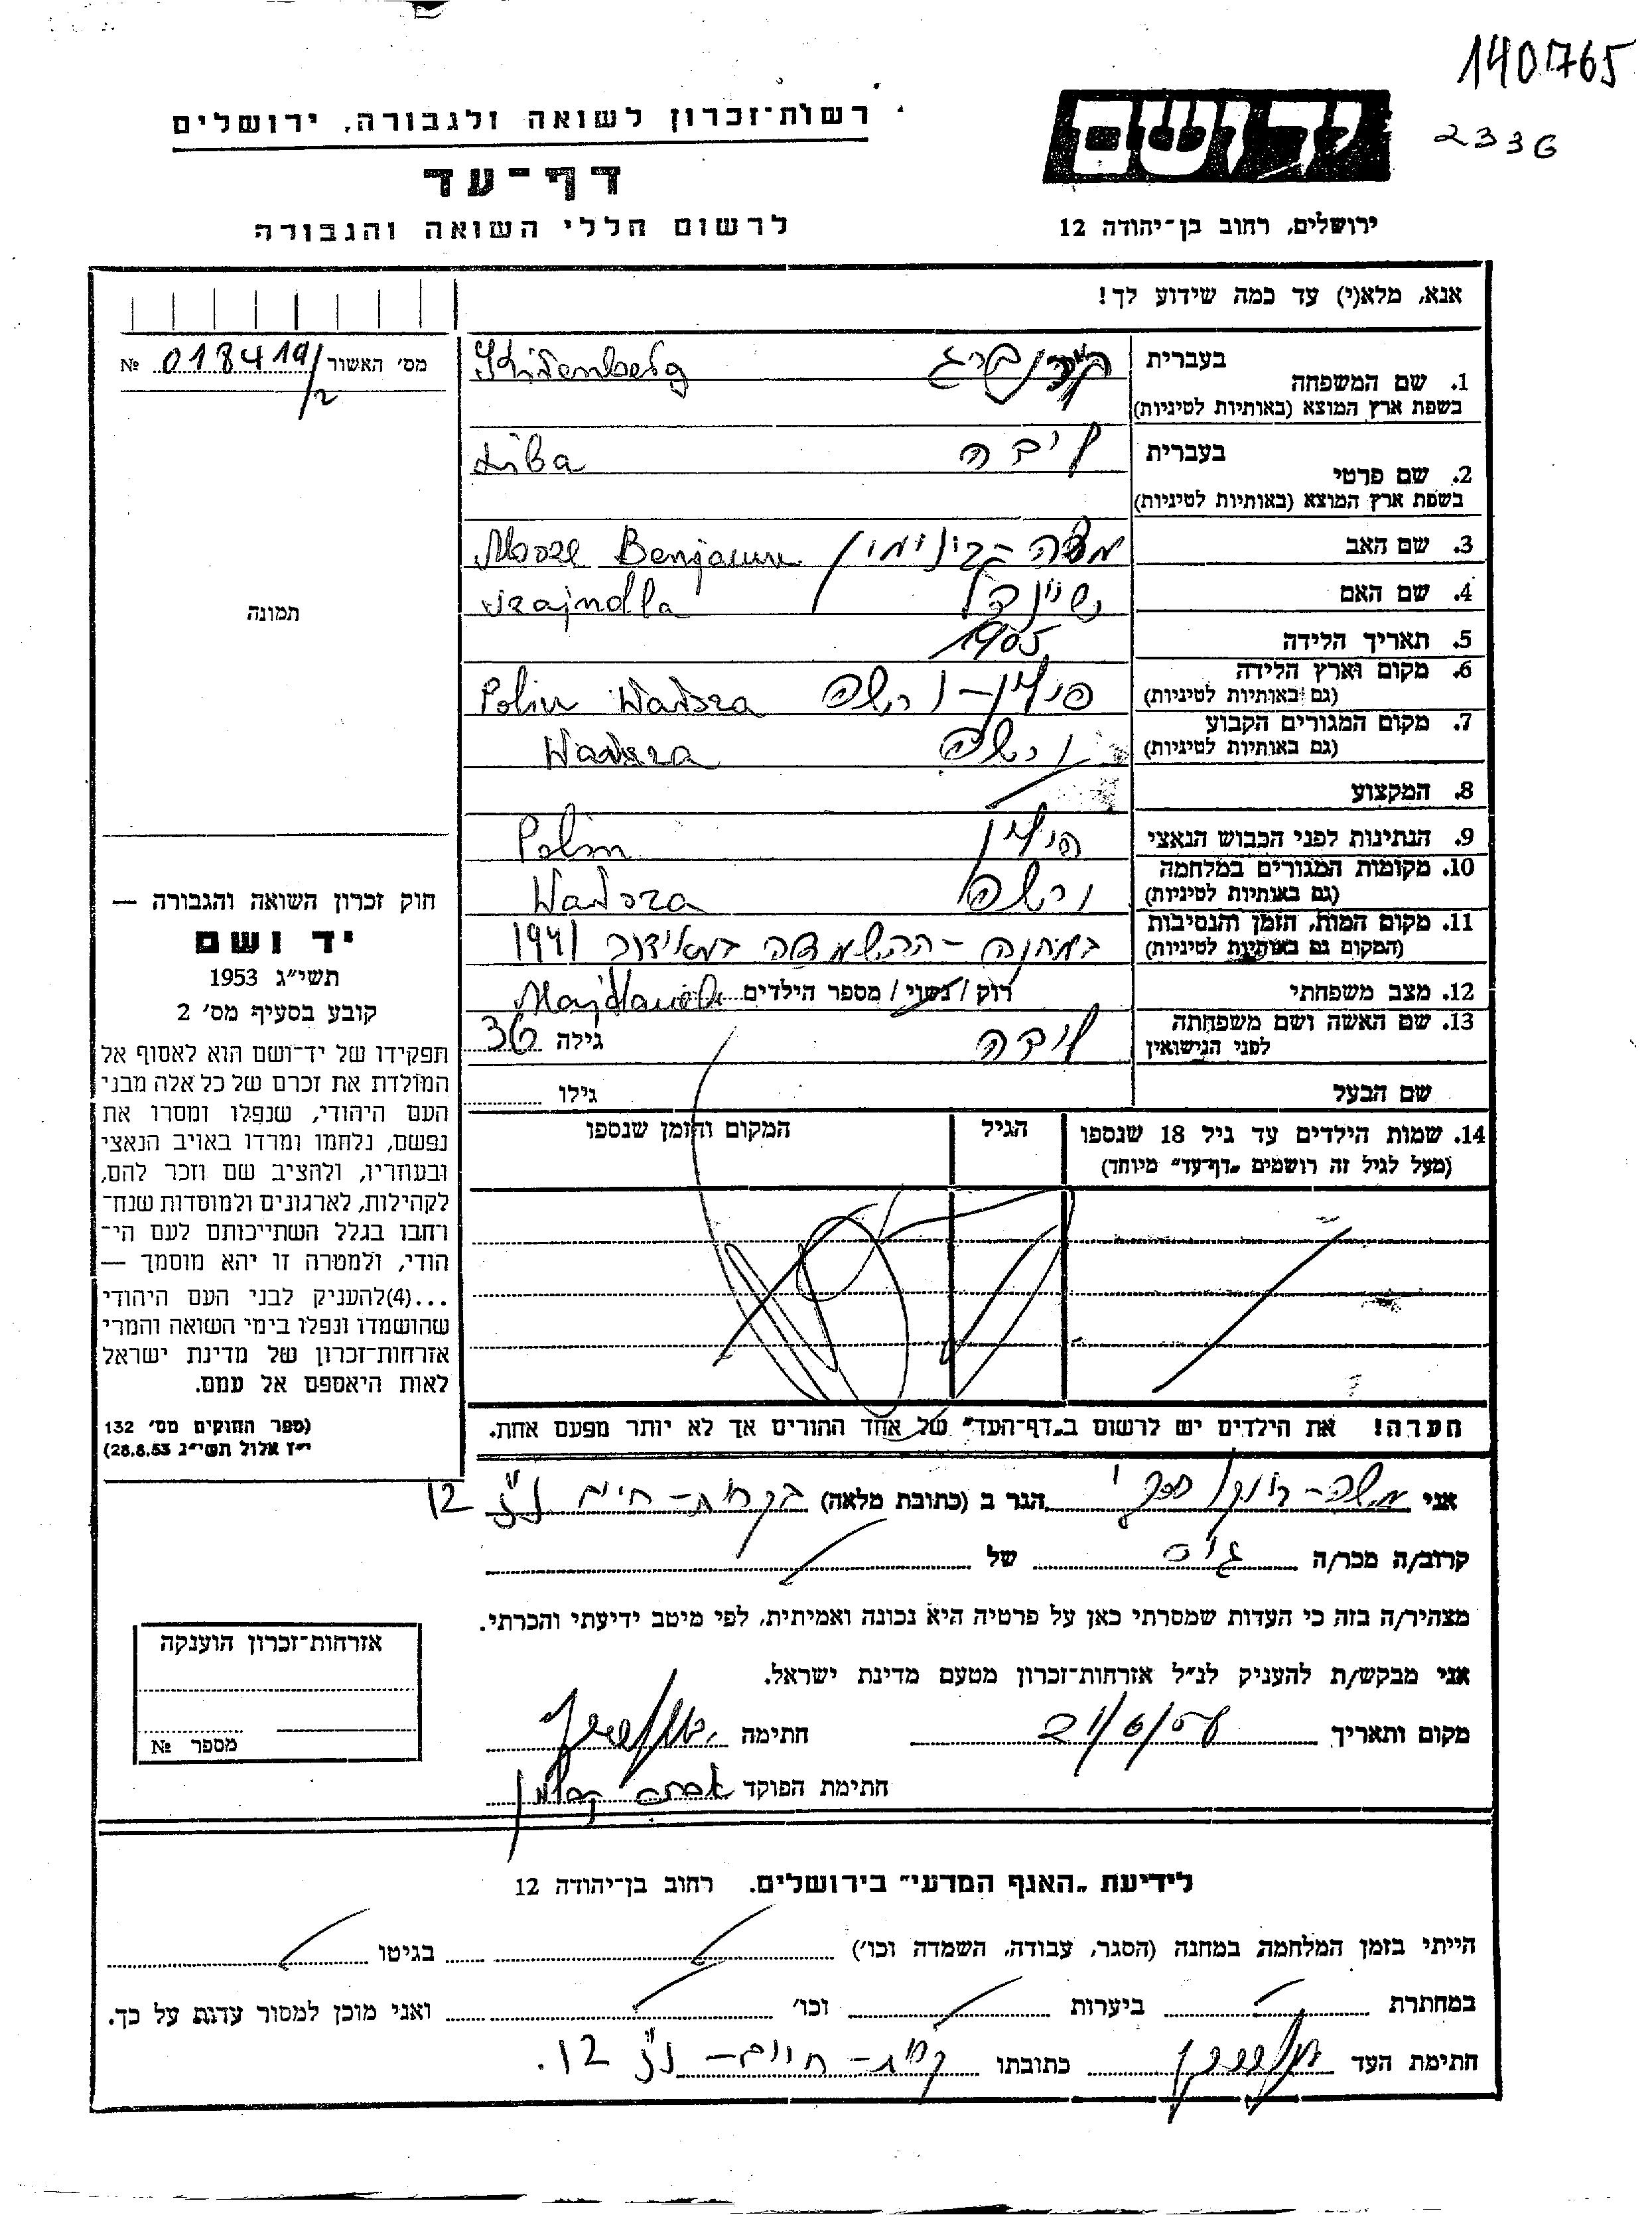 140765
2336
רשות־זכרון לשואה ולגבורה, ירושלים
דף־עד
לרשום חללי השואה והגבורה
יד ושם
ירושלים, רחוב בן־יהודה 12
אנא, מלא(י) עד כמה שידוע לך!
מס' האשור 018419/2 №
1. שם המשפחה
בעברית
בשפת ארץ המוצא (באותיות לטיניות)
2. שם פרטי
בעברית ליבה Liba
בשפת ארץ המוצא (באותיות לטיניות)
3. שם האב משה-בינימין Mosze Benjamin
4. שם האם שיינדל Szajndla
5. תאריך הלידה 1905
6. מקום וארץ הלידה פולין - ורשה Polin Warsza
(גם באותיות לטיניות)
7. מקום המגורים הקבוע ורשה Warsza
(גם באותיות לטיניות)
8. המקצוע
9. הנתינות לפני הכבוש הנאצי פולין Polin
10. מקומות המגורים במלחמה ורשה Warsza
(גם באותיות לטיניות)
11. מקום המות, הזמן והנסיבות במחנה - ההשמדה 1941
(המקום גם באותיות לטיניות)
12. מצב משפחתי רווק / נשוי / מספר הילדים
13. שם האשה ושם משפחתה ליבה גילה 36
לפני הנישואין
שם הבעל גילו
14. שמות הילדים עד גיל 18 שנספו הגיל המקום והזמן שנספו
(מעל לגיל זה רושמים "דף־עד" מיוחד)
הערה! את הילדים יש לרשום ב"דף־העד" של אחד ההורים אך לא יותר מפעם אחת.
תמונה
חוק זכרון השואה והגבורה —
יד ושם
תשי"ג 1953
קובע בסעיף מס' 2
תפקידו של יד־ושם הוא לאסוף אל
המולדת את זכרם של כל אלה מבני
העם היהודי, שנפלו ומסרו את
נפשם, נלחמו ומרדו באויב הנאצי
ובעוזריו, ולהציב שם וזכר להם,
לקהילות, לארגונים ולמוסדות שנח־
רחבו בגלל השתייכותם לעם הי־
הודי, ולמטרה זו יהא מוסמך —
...(4)להעניק לבני העם היהודי
שהושמדו ונפלו בימי השואה והמרי
אזרחות־זכרון של מדינת ישראל
לאות היאספם אל עמם.
(ספר החוקים מס' 132
י"ז אלול תשי"ג 28.8.53)
אני משה הגר ב (כתובת מלאה) בקרית-חיים 12
קרוב/ה מכר/ה גיס של
מצהיר/ה בזה כי העדות שמסרתי כאן על פרטיה היא נכונה ואמיתית, לפי מיטב ידיעתי והכרתי.
אני מבקש/ת להעניק לנ"ל אזרחות־זכרון מטעם מדינת ישראל.
מקום ותאריך חתימה
חתימת הפוקד
אזרחות־זכרון הוענקה
מספר №
לידיעת "האגף המדעי" בירושלים. רחוב בן־יהודה 12
הייתי בזמן המלחמה במחנה (הסגר, עבודה, השמדה וכו') בגיטו
במחתרת ביערות וכו' ואני מוכן למסור עדות על כך.
חתימת העד כתובתו קרית-חיים- 12.